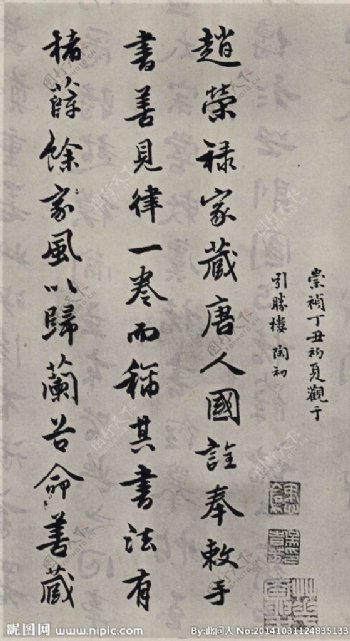 崇禎丁丑初夏觀于
引勝樓 陶初
趙榮祿家藏唐人國詮奉敕手
書善見律一卷而稱其書法有
褚薛餘家風以歸蘭谷命善藏
昵图网 www.nipic.com
By:此间人 No:20141031124835133000